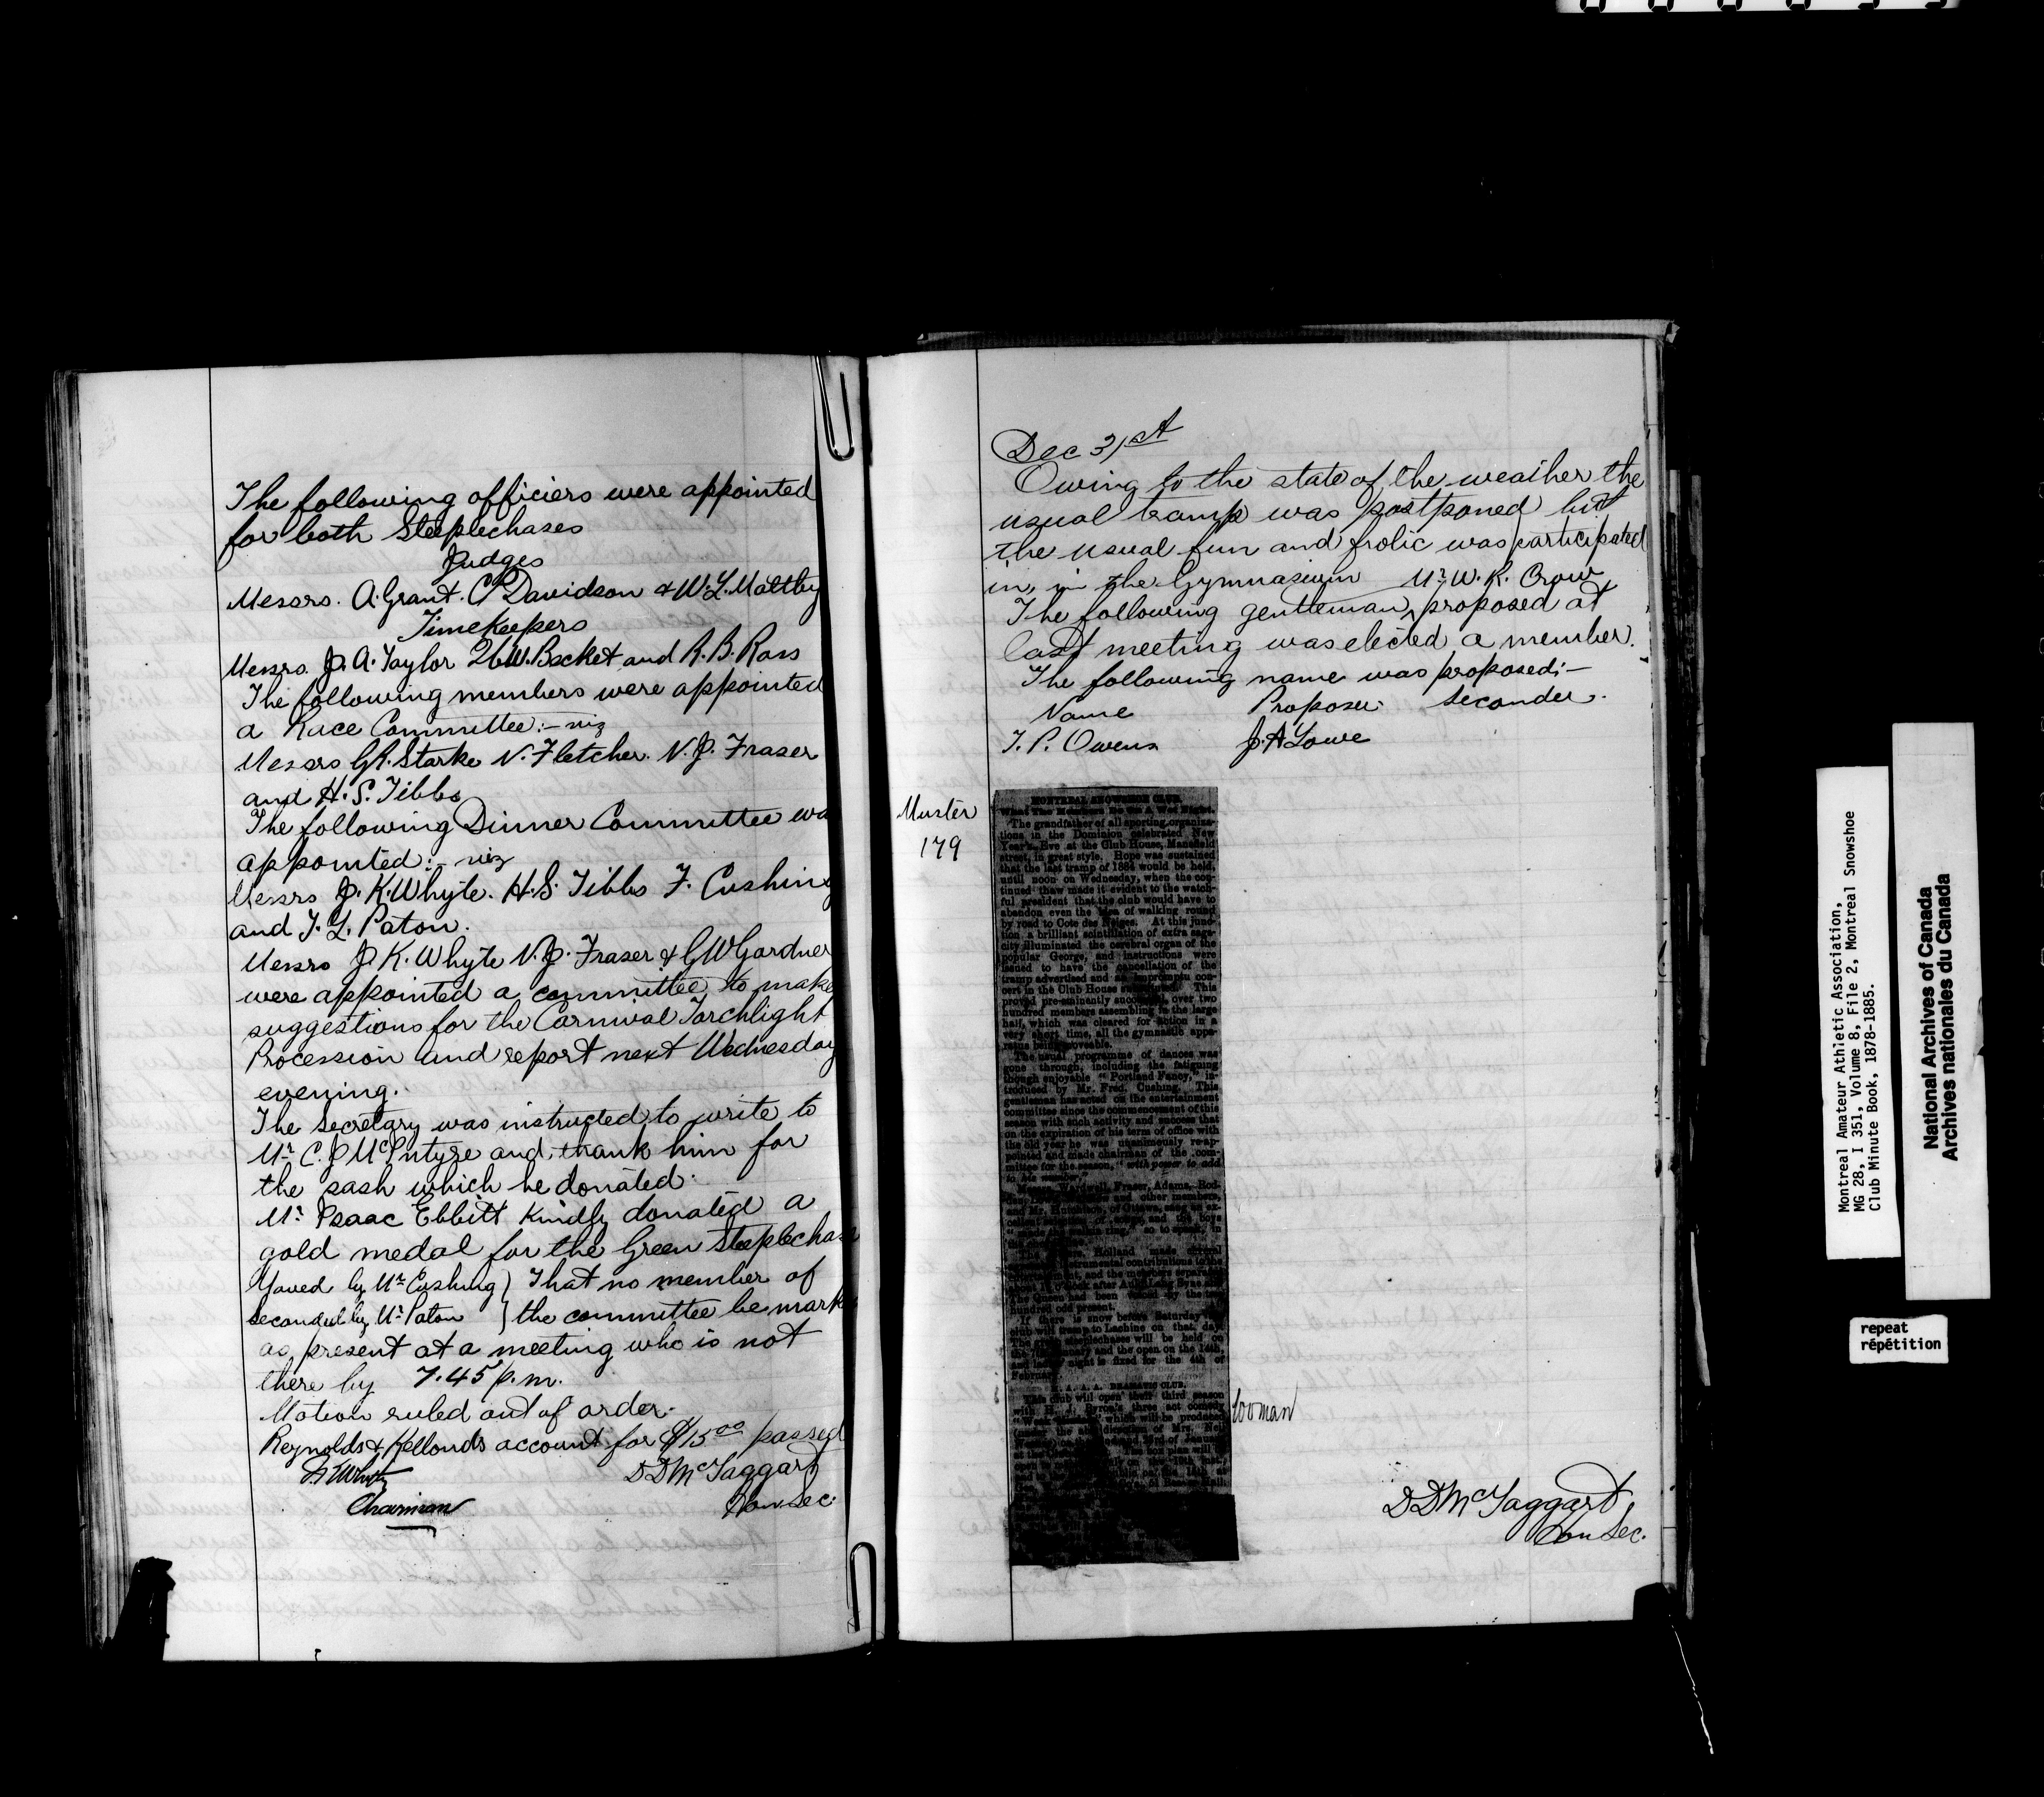 The following officiers were appointed
for both Steeplechases
Judges
Messrs. A. Grant. C P Davidson & W. L. Maltby
Timekeepers
Messrs. J. A. Taylor W. Becket and R. B. Ross
The following members were appointed
a Race Committee:- viz
Messrs G. R. Starke N. Fletcher. N. J. Fraser
and H. S. Tibbs
The following Dinner Committee wa
appointed:- viz
Messrs J. K. Whyte. H. S. Tibbs F. Cushing
and T. L. Paton.
Messrs J. K. Whyte N. J. Fraser & G W Gardner
were appointed a committee to make
suggestions for the Carnival Torchlight
Procession and report next Wednesday
evening.
The Secretary was instructed to write to
Mr. C. J McIntyre and thank him for
the sash which he donated.
Mr. Isaac Ebbitt kindly donated a
gold medal for the Green Steeplechase
Moved by Mr. Cushing } That no member of
Seconded by Mr. Paton } the committee be mark
as present at a meeting who is not
there by 7.45 p.m.
Motion ruled out of order.
Reynolds & Kellonds account for $15.00 passed
Chairman
D D McTaggart
Hon. Sec.
Dec 31st
Owing to the state of the weather the
usual tramp was postponed but
the usual fun and frolic was participated
in, in the Gymnasium
Mr. W. K. Crow
The following gentleman proposed at
last meeting was elected a member.
The following name was proposed:-
Name Proposer Seconder.
T. P. Owens J. A Lowe
Muster
179
MONTREAL SNOWSHOE CLUB.
What The Members Do On A Wet Night.
The grandfather of all sporting organiza-
tions in the Dominion celebrated New
Year's Eve at the Club House, Mansfield
street, in great style. Hope was sustained
that the last tramp of 1884 would be held,
until noon on Wednesday, when the con-
tinued thaw made it evident to the watch-
ful president that the club would have to
abandon even the idea of walking round
by road to Cote des Neiges. At this junc-
tion a brilliant scintillation of extra saga-
city illuminated the cerebral organ of the
popular George, and instructions were
issued to have the cancellation of the
tramp advertised and an impromptu con-
cert in the Club House This
proved pre-eminently successful, over two
hundred members assembling in the large
hall, which was cleared for action in a
very short time, all the gymnastic appa-
ratus being moveable.
The usual programme of dances was
gone through, including the fatiguing
though enjoyable "Portland Fancy," in-
troduced by Mr. Fred. Cushing. This
gentleman has acted on the entertainment
committee since the commencement of this
season with such activity and success that
on the expiration of his term of office with
the old year he was unanimously re-ap-
pointed and made chairman of the com-
mittee for the season, "with power to add
to
Fraser, Adams, Rod-
and other members,
and Mr. of Ottawa, sang an ex-
and the boys
so to speak, in
Holland made several
contributions to the
and the
after Auld Lang Syne and
The Queen had been
hundred odd present.
If there is snow before Saturday the
club will tramp to Lachine on that day.
The steeplechases will be held on
the and the open on the 14th,
and night is fixed for the 4th of
February
A. A. A. DRAMATIC CLUB.
This club will open their third season
with H. J. Byron's three act comedy
which will be produced
woman
D D McTaggart
Hon Sec.
Montreal Amateur Athletic Association,
MG 28, I 351, Volume 8, File 2, Montreal Snowshoe
Club Minute Book, 1878-1885.
National Archives of Canada
Archives nationales du Canada
repeat
répétition